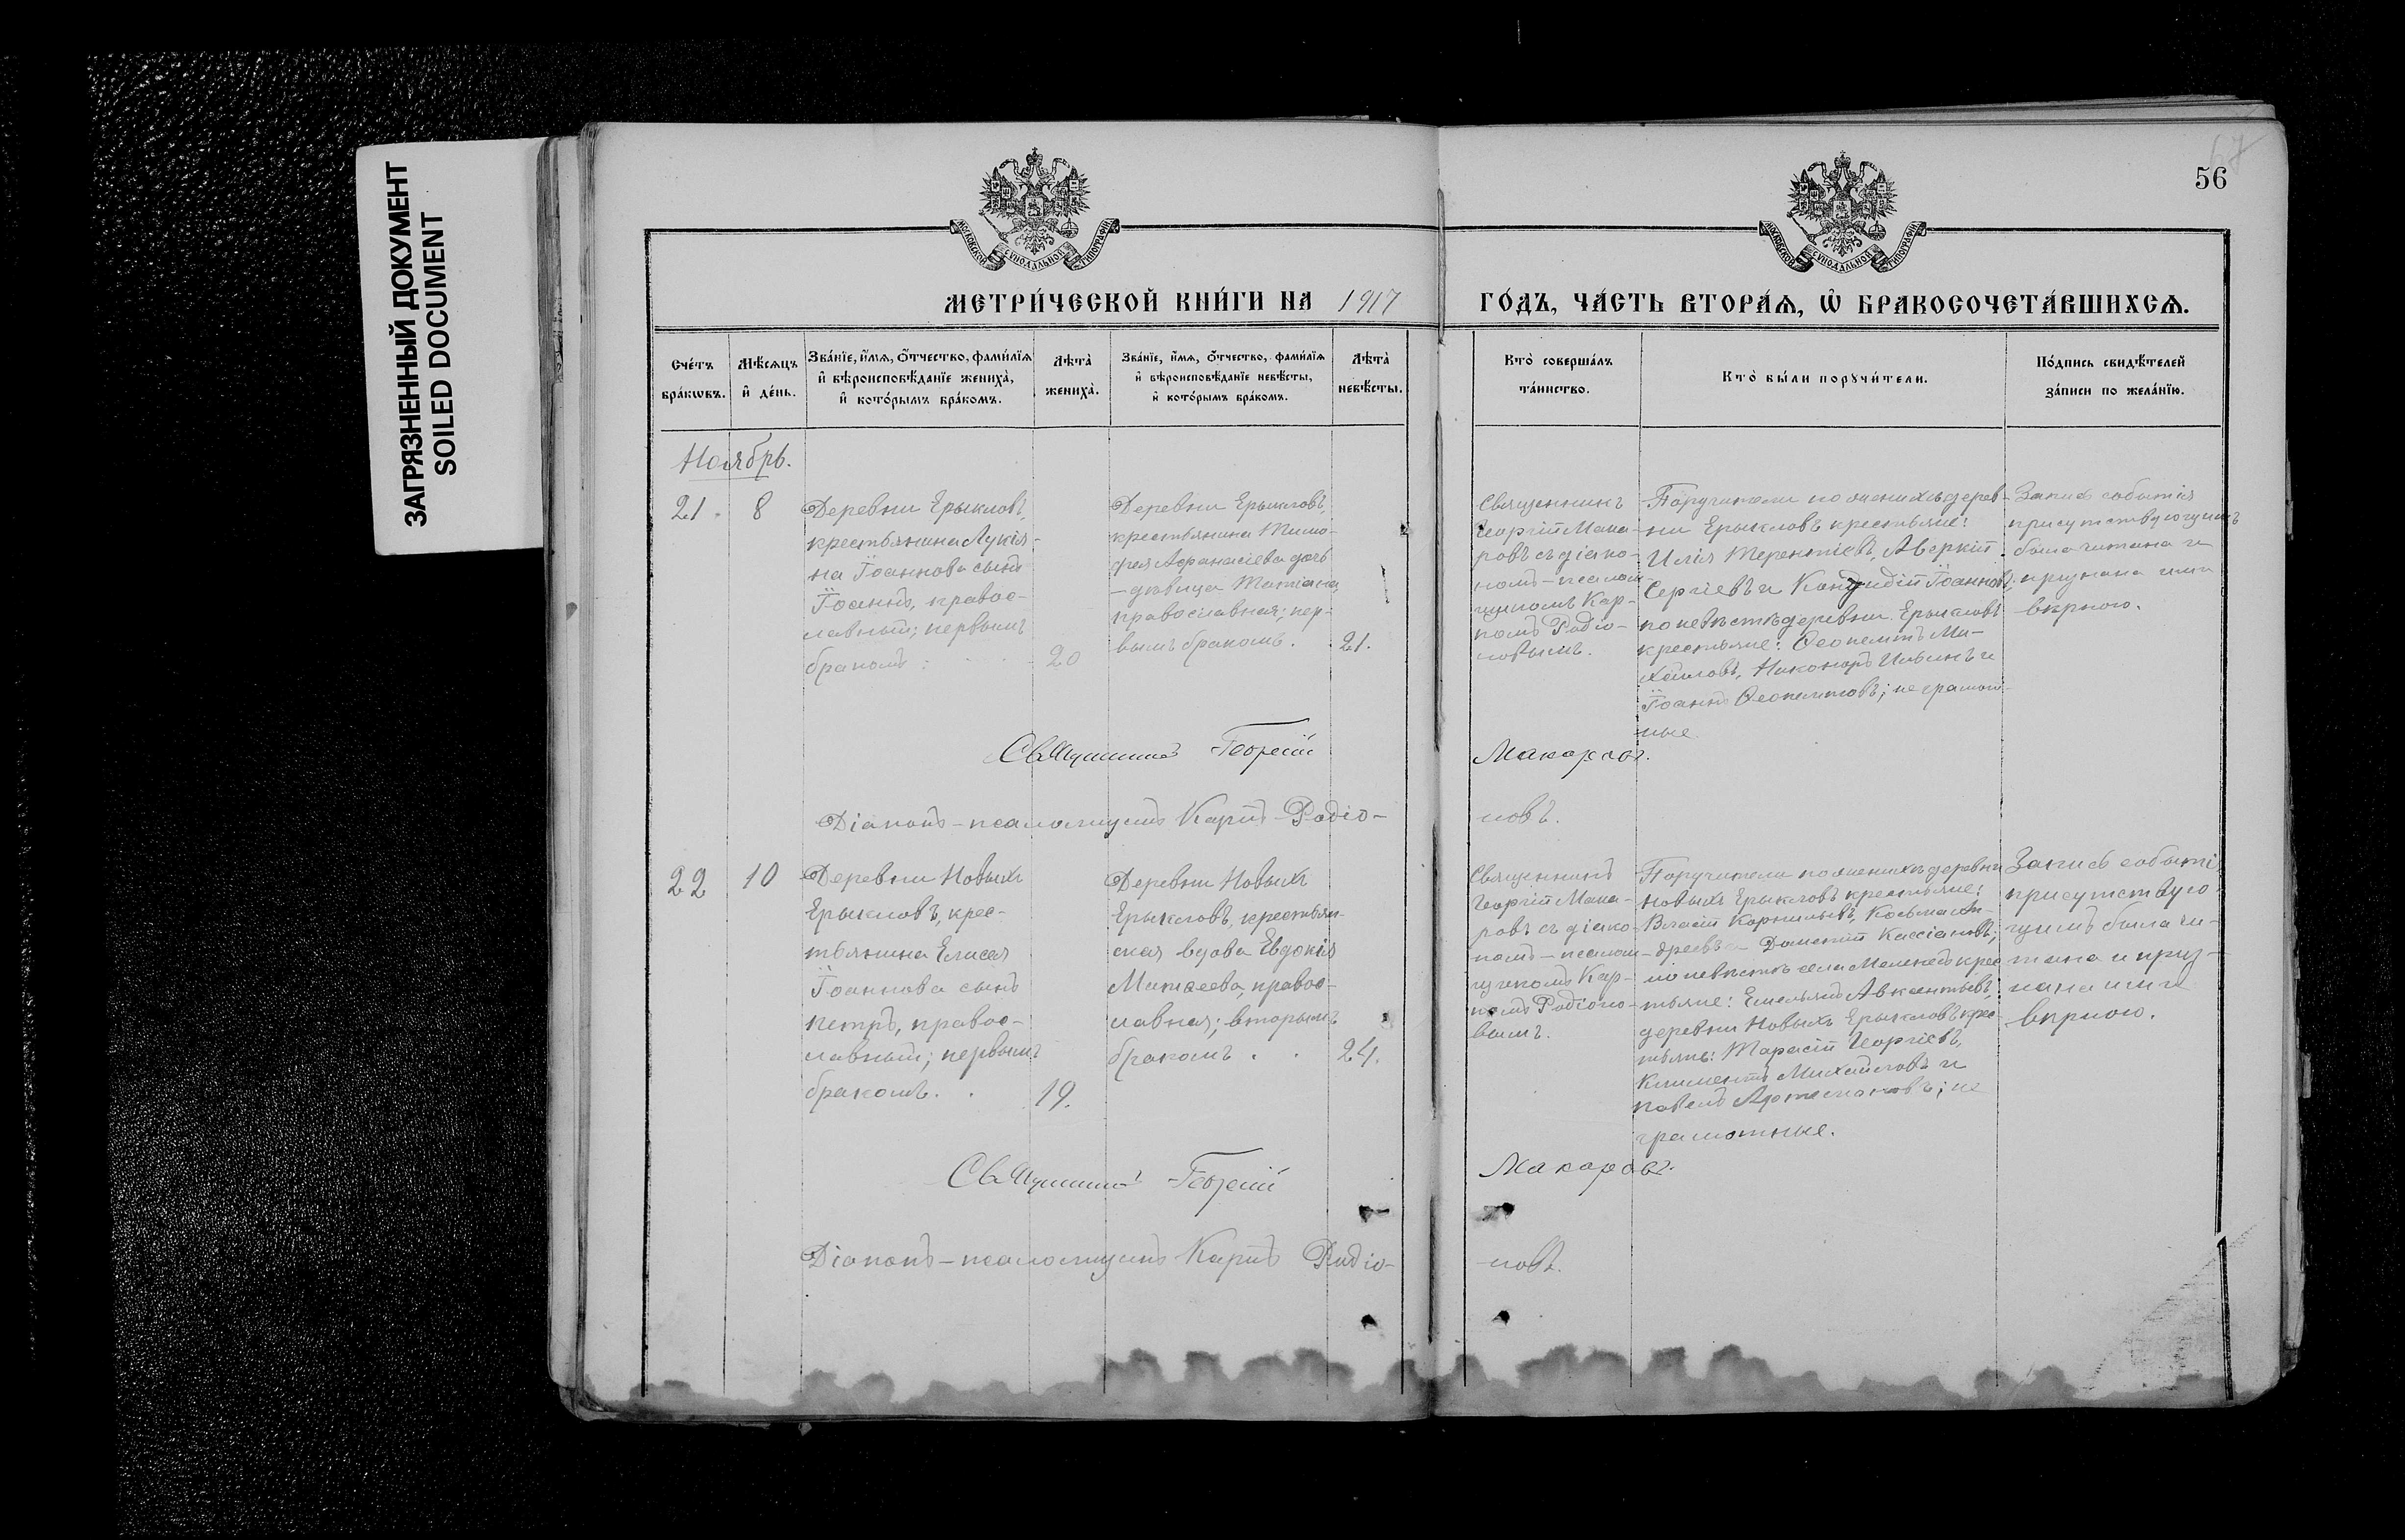 ЗАГРЯЗНЕННЫЙ ДОКУМЕНТ
SOILED DOCUMENT
56
МОСКОВСКОЙ СѴНОДАЛЬНОЙ ТИПОГРАФІИ
МОСКОВСКОЙ СѴНОДАЛЬНОЙ ТИПОГРАФІИ
МЕТРИ́ЧЕСКОЙ КНИ́ГИ НА 1917
ГО́ДЪ, ЧА́СТЬ ВТОРА́Ѧ, Ѽ БРАКОСОЧЕТА́ВШИХСѦ.
Сче́тъ
бра́кѡвъ.
Мѣ́сѧцъ
и҆ де́нь.
Зва́нїе, и҆́мѧ, ѻ҆́тчество, фами́лїѧ
и҆ вѣроисповѣ́данїе жениха̀,
и҆ кото́рымъ бра́комъ.
Лѣ́та
жениха̀.
Зва́нїе, и҆́мѧ, ѻ҆́тчество, фами́лїѧ
и҆ вѣроисповѣ́данїе невѣ́сты,
и҆ кото́рымъ бра́комъ.
Лѣ́та
невѣ́сты.
Кто̀ соверша́лъ
та́инство.
Кто̀ бы́ли порꙋчи́тели.
По́дпись свидѣ́телей
за́писи по жела́нїю.
Ноябрь.
21.
8
Деревни Ерыкловъ,
крестьянина Лукія-
на Іоаннова сынъ
Іоаннъ, правос-
лавный; первымъ
бракомъ.
20
Деревни Ерыкловъ,
крестьянина Тимо-
фея Афанасіева дочь
- дѣвица Татіана,
православная; пер-
вымъ бракомъ.
21.
Священникъ
Георгій Мака-
ровъ съ діако-
номъ-псалом-
щикомъ Кар-
помъ Родіо-
новымъ.
Поручители по женихѣ дерев-
ни Ерыкловъ крестьяне:
Илія Терентіевъ, Аверкій
Сергіевъ и Іоанновъ;
по невѣстѣ деревни Ерыкловъ
крестьяне: Ѳеопемптъ Ми-
хайловъ, Никоноръ Ильинъ и
Іоаннъ Ѳеопемптовъ; неграмот-
ные.
Запись событія
присутствующимъ
была читана и
признана ими
вѣрною.
Священникъ Георгій
Макаровъ.
Діаконъ-псаломщикъ Карпъ Родіо-
новъ.
22
10
Деревни Новыхъ
Ерыкловъ, крес-
тьянина Елисея
Іоаннова сынъ
Петръ, правос-
лавный; первымъ
бракомъ.
19.
Деревни Новыхъ
Ерыкловъ, крестьян-
ская вдова Евдокія
Матѳеева, правос-
лавная; вторымъ
бракомъ.
24.
Священникъ
Георгій Мака-
ровъ съ діако-
номъ-псалом-
щикомъ Кар-
помъ Родіоно-
вымъ.
Поручители по женихѣ деревни
Новыхъ Ерыкловъ крестьяне:
Власій Корнильевъ, Косьма Ан-
дреевъ Дометій Кассіановъ;
по невѣстѣ села Мелекесъ крес-
тьяне: Емельянъ Авксентьевъ,
деревни Новыхъ Ерыкловъ крес-
тьяне: Тарасій Георгіевъ,
Климентъ Михайловъ и
Павелъ Артемоновъ; не
грамотные.
Запись событія
присутствую-
щимъ была чи-
тана и приз-
нана ими
вѣрною.
Священникъ Георгій
Макаровъ.
Діаконъ-псаломщикъ Карпъ Родіо-
новъ.